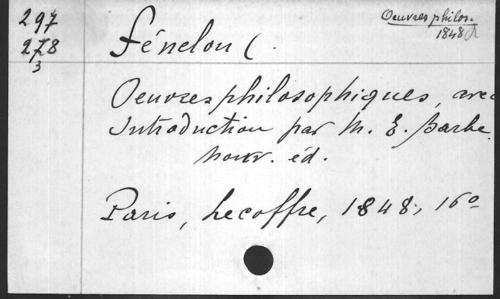 297
278
3
Oeuvres philos.
1848
Fénelon (
Oeuvres philosophiques, avec
Introduction par M. E. Barbe.
nouv. éd.
Paris, Lecoffre, 1848, 16o